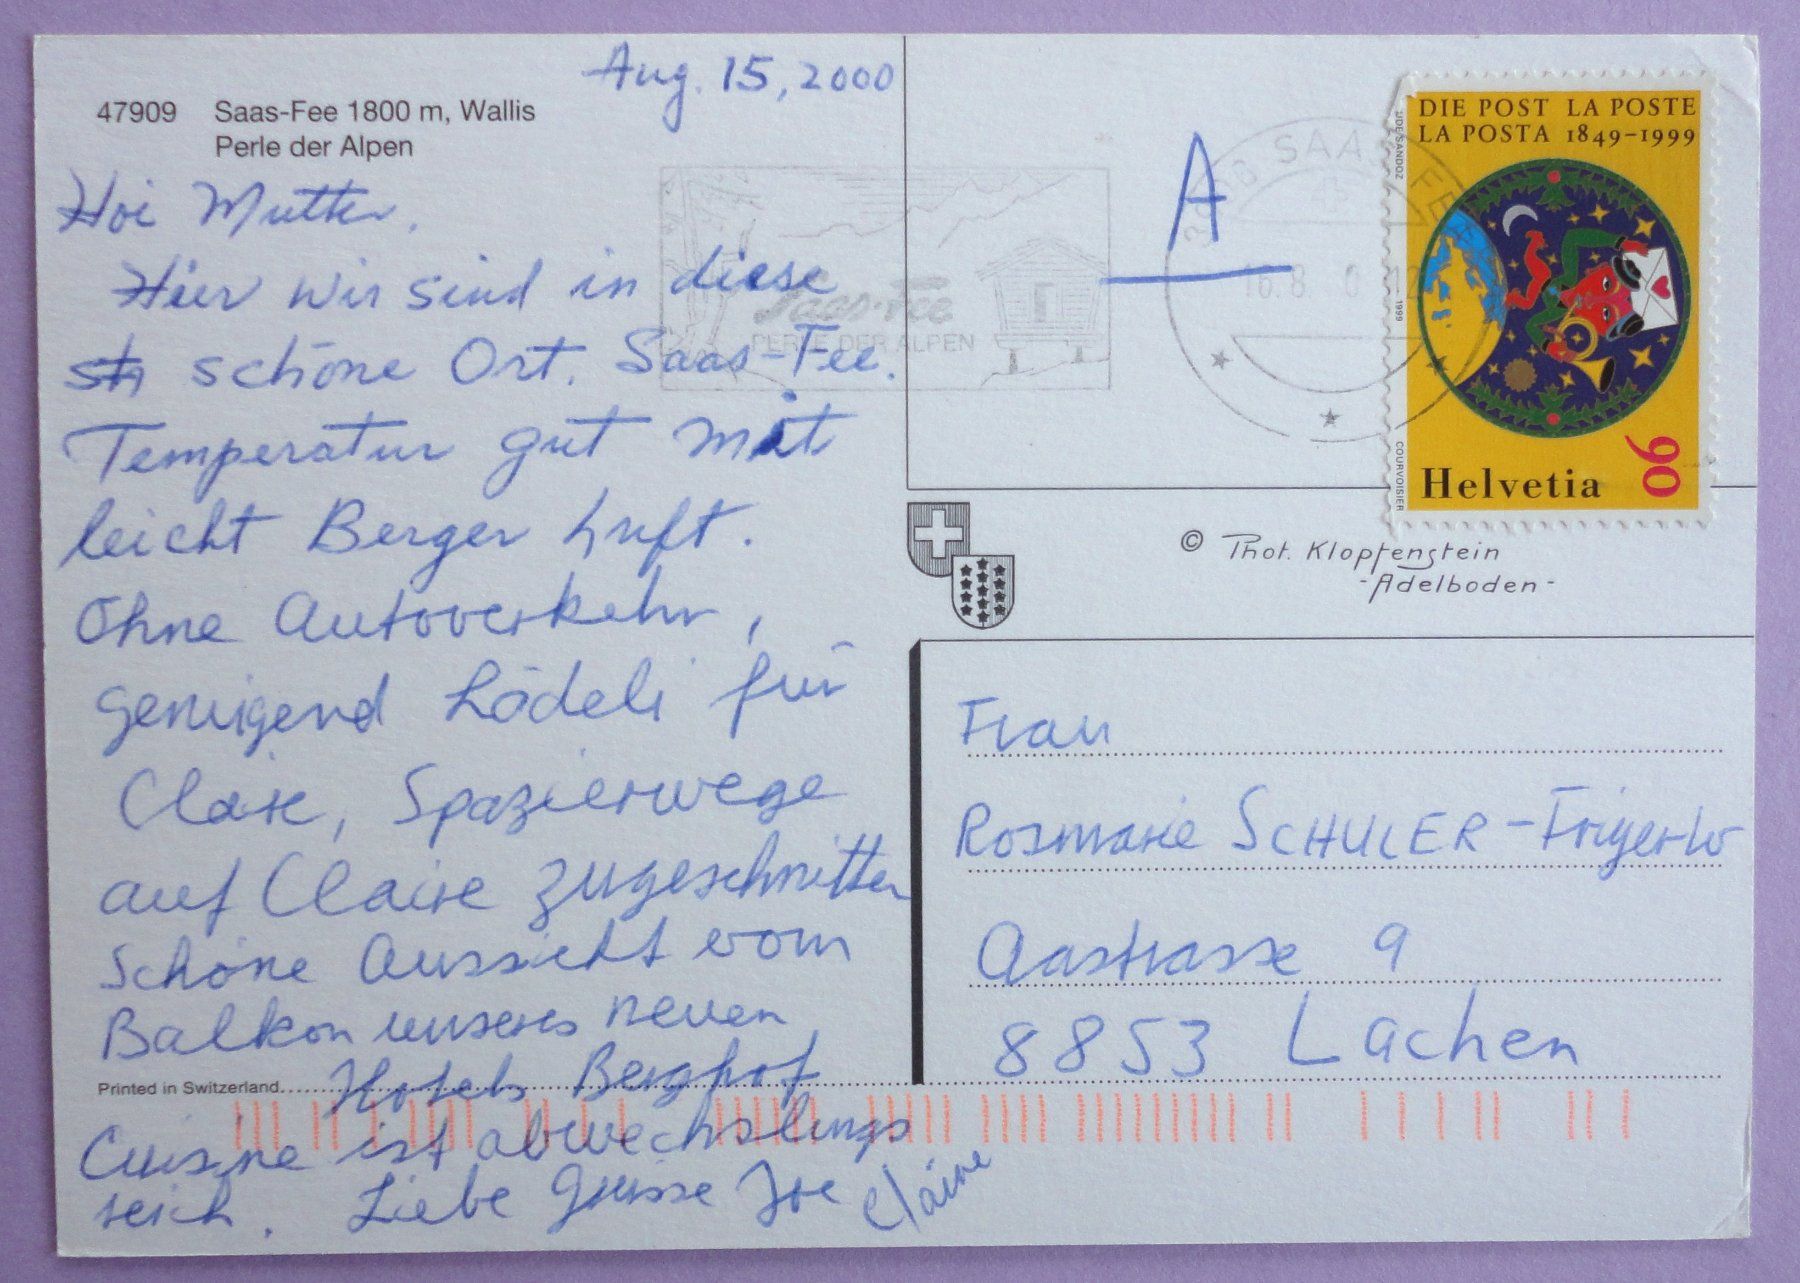 Aug. 15, 2000
47909 Saas-Fee 1800 m, Wallis
Perle der Alpen
Hoi Mutter,
Hier wir sind in diese
schöne Ort. Saas-Fee.
Temperatur gut mit
leicht Berger Luft.
Ohne Autoverkehr,
genügend Lädeli für
Claire, Spazierwege
auf Claire zugeschnitten
Schöne Aussicht vom
Balkon unseres neuen
Hotels Berghof
Printed in Switzerland
Cuisine ist abwechslungs
reich. Liebe Grüsse Joe Claire
Saas-Fee
PERLE DER ALPEN
A
3906 SAAS-FEE
16.8.
DIE POST LA POSTE
LA POSTA 1849-1999
Helvetia
90
1999
COURVOISIER
© Phot. Klopfenstein
-Adelboden-
Frau
Rosmarie SCHULER-Frigerio
Aastrasse 9
8853 Lachen